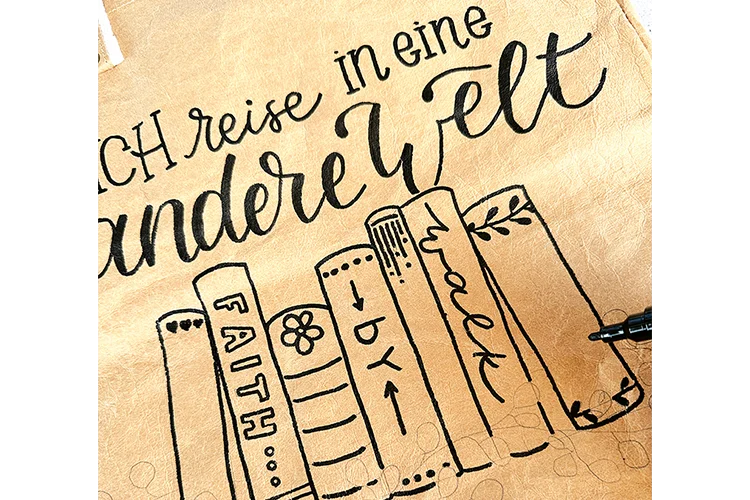 ICH reise in eine
andere Welt
FAITH
by
walk